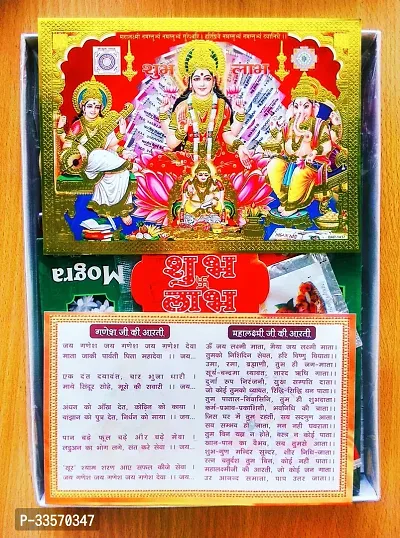 शुभ लाभ
Mogra
शुभ
लाभ
गणेश जी की आरती
जय गणेश जय गणेश जय गणेश देवा
माता जाकी पार्वती पिता महादेवा ।। जय...
एक दंत दयावंत, चार भुजा धारी ।
माथे सिंदूर सोहे, मूसे की सवारी ।। जय...
अंधन को आँख देत, कोढ़िन को काया ।
बांझन को पुत्र देत, निर्धन को माया ।। जय...
पान चढ़े फूल चढ़े और चढ़े मेवा ।
लड्डुअन का भोग लगे, संत करे सेवा ।। जय...
'सूर' श्याम शरण आए सफल कीजे सेवा ।
जय गणेश जय गणेश जय गणेश देवा ।। जय...
महालक्ष्मी जी की आरती
ॐ जय लक्ष्मी माता, मैया जय लक्ष्मी माता।
तुमको निशिदिन सेवत, हरि विष्णु विधाता।।
उमा, रमा, ब्रह्माणी, तुम ही जग-माता।
सूर्य-चन्द्रमा ध्यावत, नारद ऋषि गाता।।
दुर्गा रूप निरंजनी, सुख सम्पति दाता।
जो कोई तुमको ध्यावत, रिद्धि-सिद्धि धन पाता।।
तुम पाताल-निवासिनि, तुम ही शुभदाता।
कर्म-प्रभाव-प्रकाशिनी, भवनिधि की त्राता।।
जिस घर में तुम रहती, सब सद्गुण आता।
सब सम्भव हो जाता, मन नहीं घबराता।।
तुम बिन यज्ञ न होते, वस्त्र न कोई पाता।
खान-पान का वैभव, सब तुमसे आता।।
शुभ-गुण मन्दिर सुन्दर, क्षीर निधि-जाता।
रत्न चतुर्दश तुम बिन, कोई नहीं पाता।।
महालक्ष्मीजी की आरती, जो कोई जन गाता।
उर आनन्द समाता, पाप उतर जाता।।
P-33570347